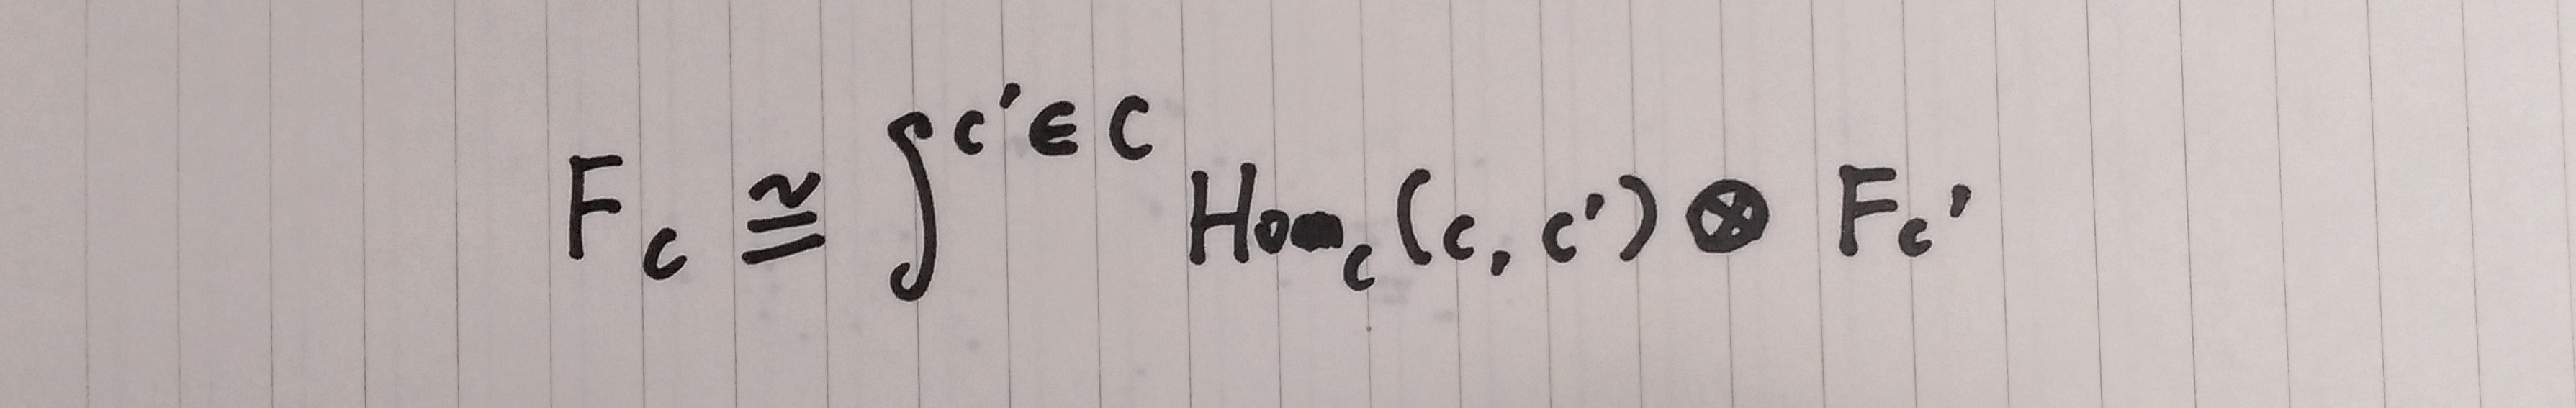 F_c ≅ ∫^{c'∈C} Hom_C(c, c') ⊗ F_{c'}